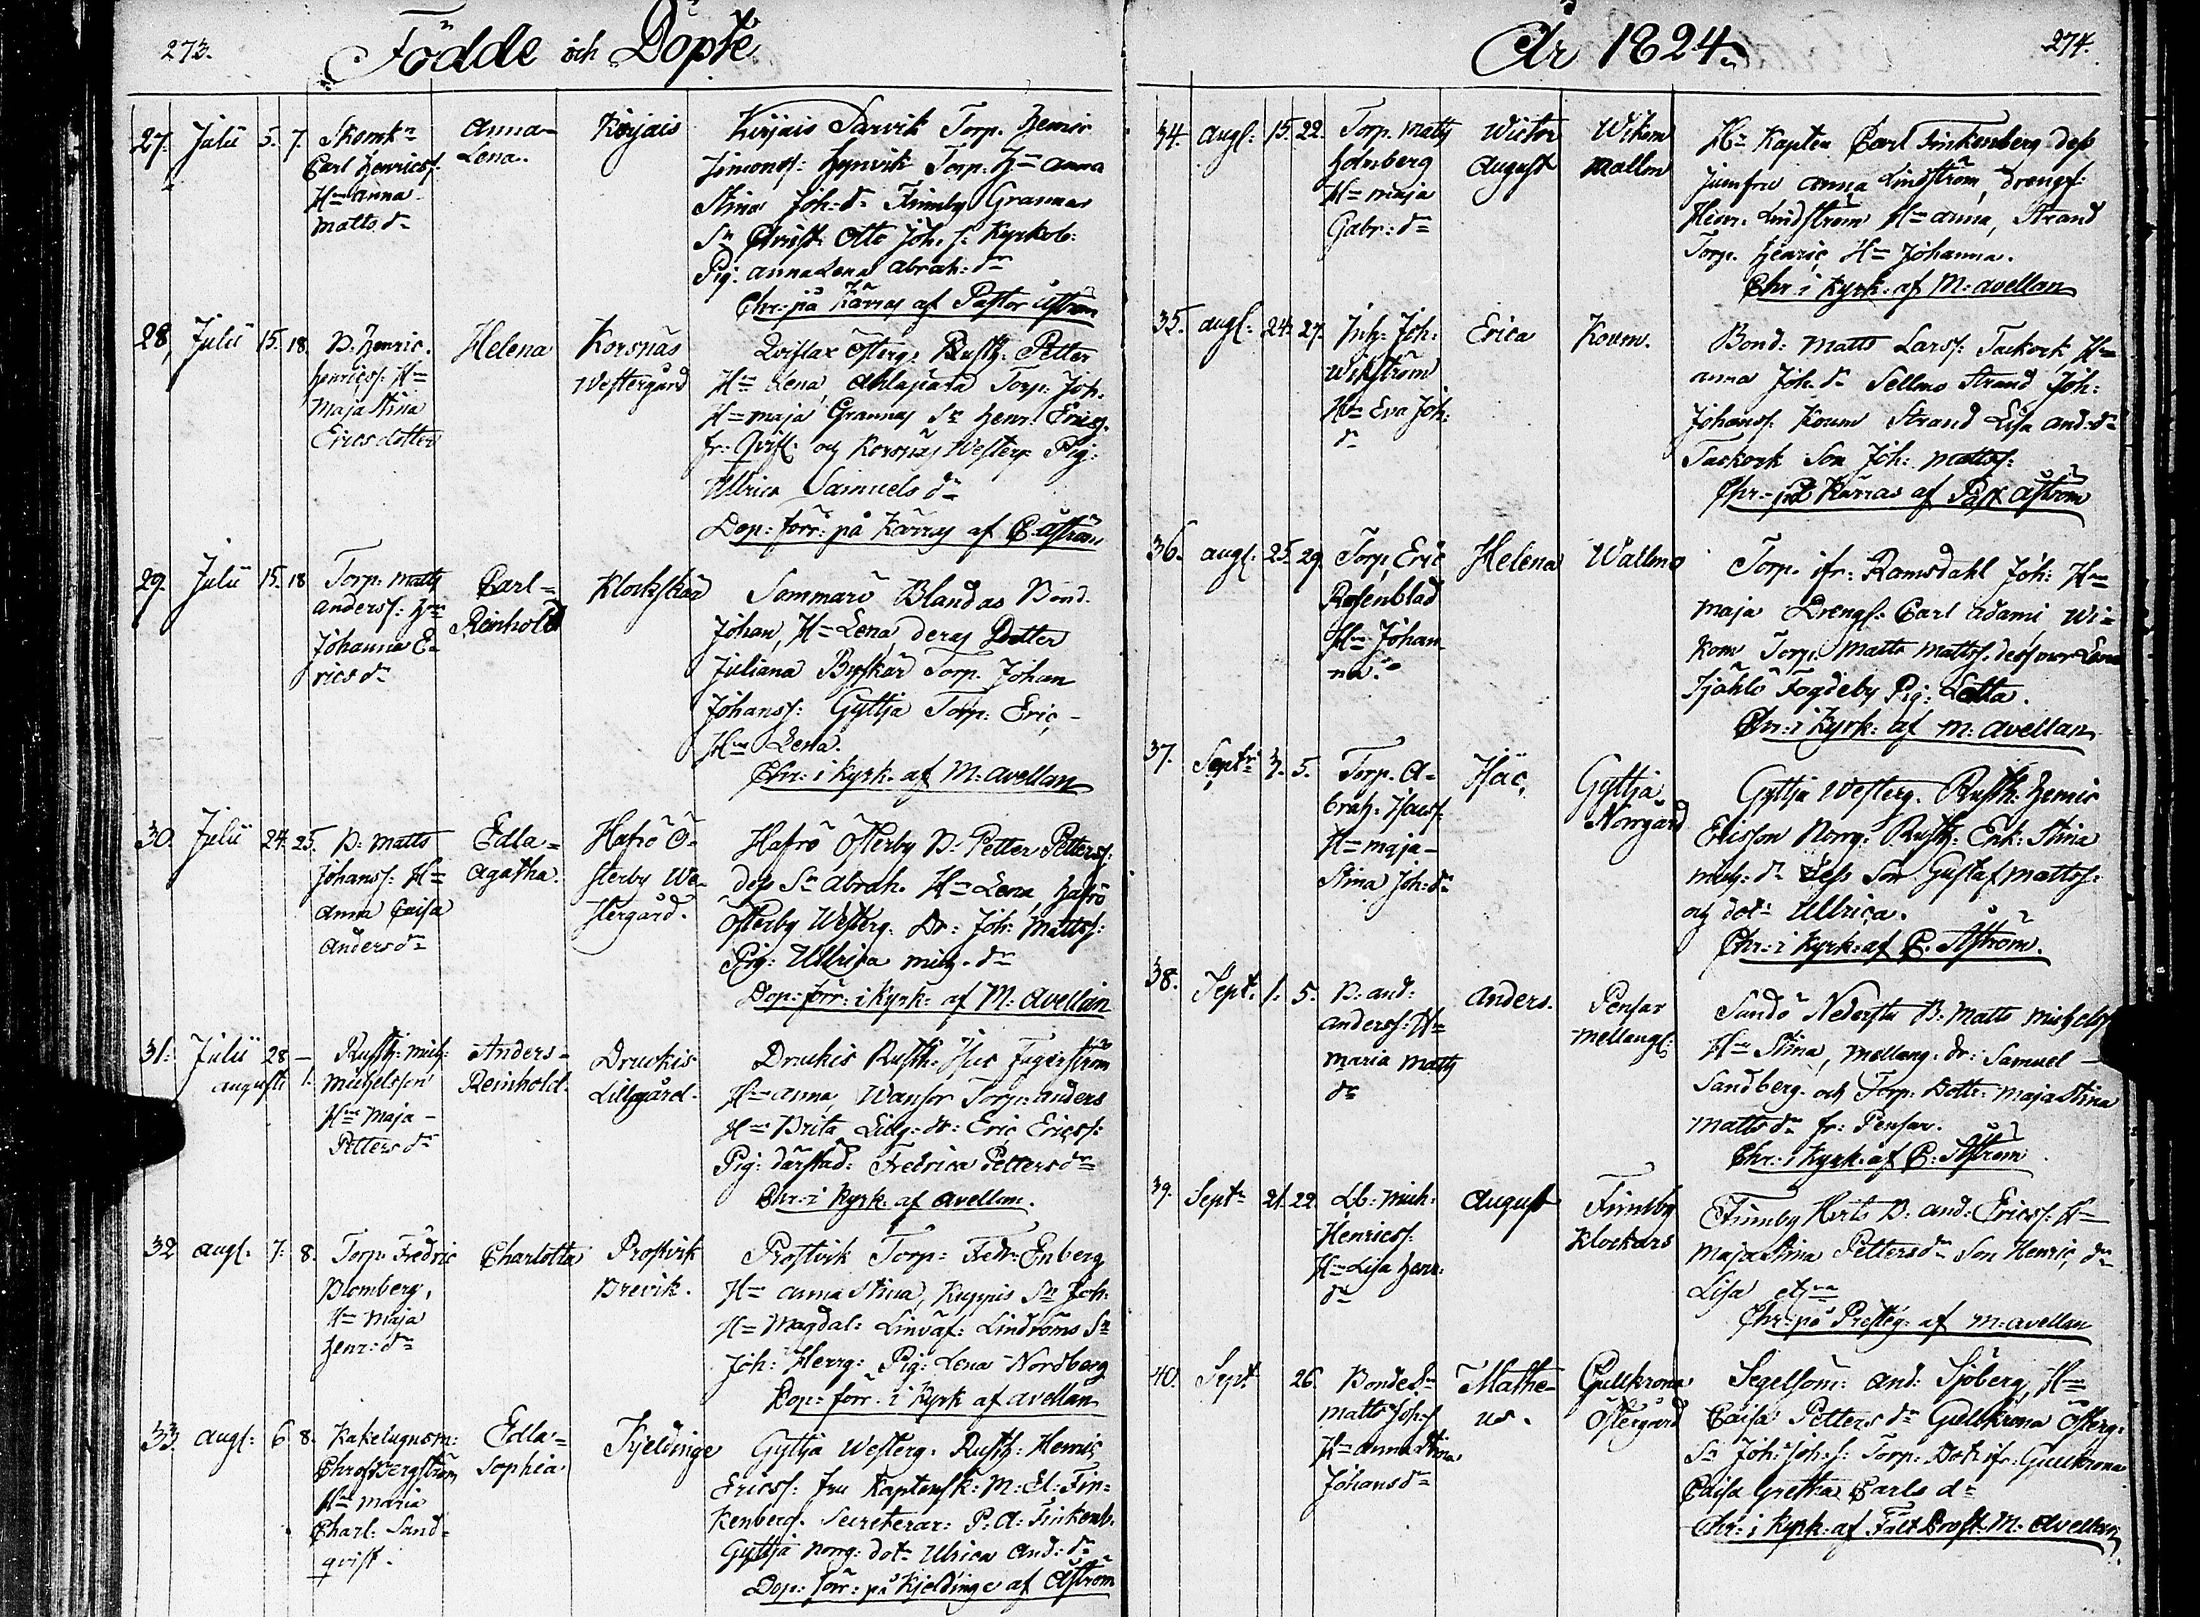 273.
Födde och Döpte
27. Julii 5. 7.
Carl Henricss.
Hu Anna
Matts dr
Anna-
Lena.
Kirjais
Kirjais Sarvik Torp. Henric
Simonss: Torp. Hu Anna
Stina Joh: dr Finnby Grannas
Sn Christ: Otto Joh. s: Kyrkob:
Pig: Anna Lena Abrah: dr
Chr: på Kärras af Pastor Åström
28, Julii 15. 18.
B. Henric
Henricss: Hu
Maja Stina
Ericsdotter
Helena
Korsnäs
Westergård
Qviflax Österg: Rusth: Petter
Hu Lena, Ahlapara Torp: Joh.
Hu Maja Grannas Sn Henr: Ericss.
fr: Qvifl: och Korsnäs Westerg Pig:
Ullrica Samuels dr
Dop: förr: på Kärras af P. Åström
29. Julii 15. 18
Torp: Matts
Anderss: Hu
Johanna E-
rics dr
Carl=
Reinhold
Klockskär
Sommarö Blandas Bond.
Johan, Hu Lena, deras Dotter
Juliana Byskär Torp. Johan
Johanss: Gyttja Torp: Eric
Hu Lena.
Chr: i Kyrk. af M: Avellan
30. Julii 24. 25.
B. Matts
Johanss: Hu
Anna Caisa
Anders dr
Edla=
Agatha.
Hafrö Ö-
sterby We-
stergård.
Hafrö Österby B. Petter Petterss:
dess Sn Abrah. Hu Lena, Hafrö
Österby Westerg. Dr: Joh: Mattss:
Pig: Ullrica Mich. dr
Dop: förr: i Kyrk: af M: Avellan
31. Julii 28 —
Augusti 1.
Rusth: Mich:
Michelsson
Hu Maja
Petters dr
Anders=
Reinhold.
Druckis
Lillgård.
Druckis Rusth. Isac Fagerström
Hu Anna, Wansor Torp: Anders
Hu Brita Lillg: dr: Eric Ericss:
Pig: därstäd: Fredrica Petters dr
Chr: i Kyrk. af Avellan.
32 Aug: 7: 8.
Torp: Fredric
Blomberg,
Hu Maja
Henr: dr
Charlotta
Prostvik
Brevik.
Prostvik Torp: Fedr: Enberg
Hu Anna Stina, Kuppis Sn Joh.
Hu Magdal: Lindroms Sn
Joh: Herrg: Pig: Lena Nordberg
Dop: förr. i Kyrk af Avellan
33. Aug: 6. 8.
Kakelugnsm:
Christ Bergström
Hu Maria
Charl: Sand-
qvist.
Edla=
Sophia
Kjeldinge
Gyttja Westerg. Rusth: Henric
Ericss: Fru Kaptensk: M: El: Fin-
kenberg. Secreterar: P: A: Finkenb.
Gyttja Norrg: dotr Ulrica And: dr
Dop: förr: på Kjeldinge af Åström
År 1824.
274.
34. Aug: 15. 22.
Torp. Matts
Holmberg
Hu Maja
Gabr: dr
Wictor
August
Wikom
Mallm
Hr Kapten Carl Finkenberg dess
Jumfru Anna Lindström, Drengs:
Henr. Lindström Hu Anna, Strand
Torp. Henric, Hu Johanna.
Chr i Kyrk. af M: Avellan
35. Aug: 24. 27.
Inh: Joh:
Wikström
Hu Eva Joh:
dr
Erica
Koum.
Bond: Matts Larss: Taskork Hu
Anna Joh. dr Sellmo Strand Joh:
Johanss: Koum Strand Lisa And: dr
Taskork Son Joh: Mattss:
Chr: på Kärras af Past Åström
36. Aug: 25. 29.
Torp. Eric
Rosenblad
Hu Johan
na.
Helena
Wallmo
Torp. ifr: Ramsdahl Joh: Hu
Maja Drengs: Carl Adami, Wi-
kom Torp: Matts Mattss. dess mor Lena
Sjöhlö Fogdeby Pig: Lotta.
Chr: i Kyrk: af M: Avellan
37. Septr 3. 5.
Torp. A-
brah. Isacs.
Hu Maja
Stina Joh: dr
Isac,
Gyttja
Norrgård
Gyttja Westerg. Rusth: Henric
Ericsson Norrg: Rusth: Enk: Stina
Mich: dr Dess Son Gustaf Mattss:
och dotr Ullrica.
Chr: i Kyrk: af P. Åström.
38. Sept. 1. 5.
B: And:
Anderss: Hu
Maria Matts
dr
Anders.
Pensar
Mellang:
Sandö Nedersta B: Matts Michelss
Hu Stina, Mellang. dr: Samuel
Sandberg. och Torp. Dottr: Maja Stina
Matts dr fr: Pensar.
Chr: i Kyrk. af P: Åström.
39. Septr 21. 22.
Lb: Mich:
Henricss:
Hu Lisa Henr:
dr
August
Finnby
Klockars
Finnby Herts B: And: Ericss: Hu
Maja Stina Petters dr Son Henric, dr
Lisa
Chr: på Prestg: af M: Avellan
40. Sept 26.
Bonde Sn
Matts Joh: s
Hu Anna Stina
Johans dr
Mathe-
us.
Gullkrona
Östergård
Segelsöm: And: Sjöberg, Hu
Caisa Petters dr Gullkrona Österg:
Sn Joh: Joh: s: Torp: Dotr ifr: Gullkrona
Caisa Gretha Carls dr
Chr: i Kyrk: af Fält Prost M: Avellan.